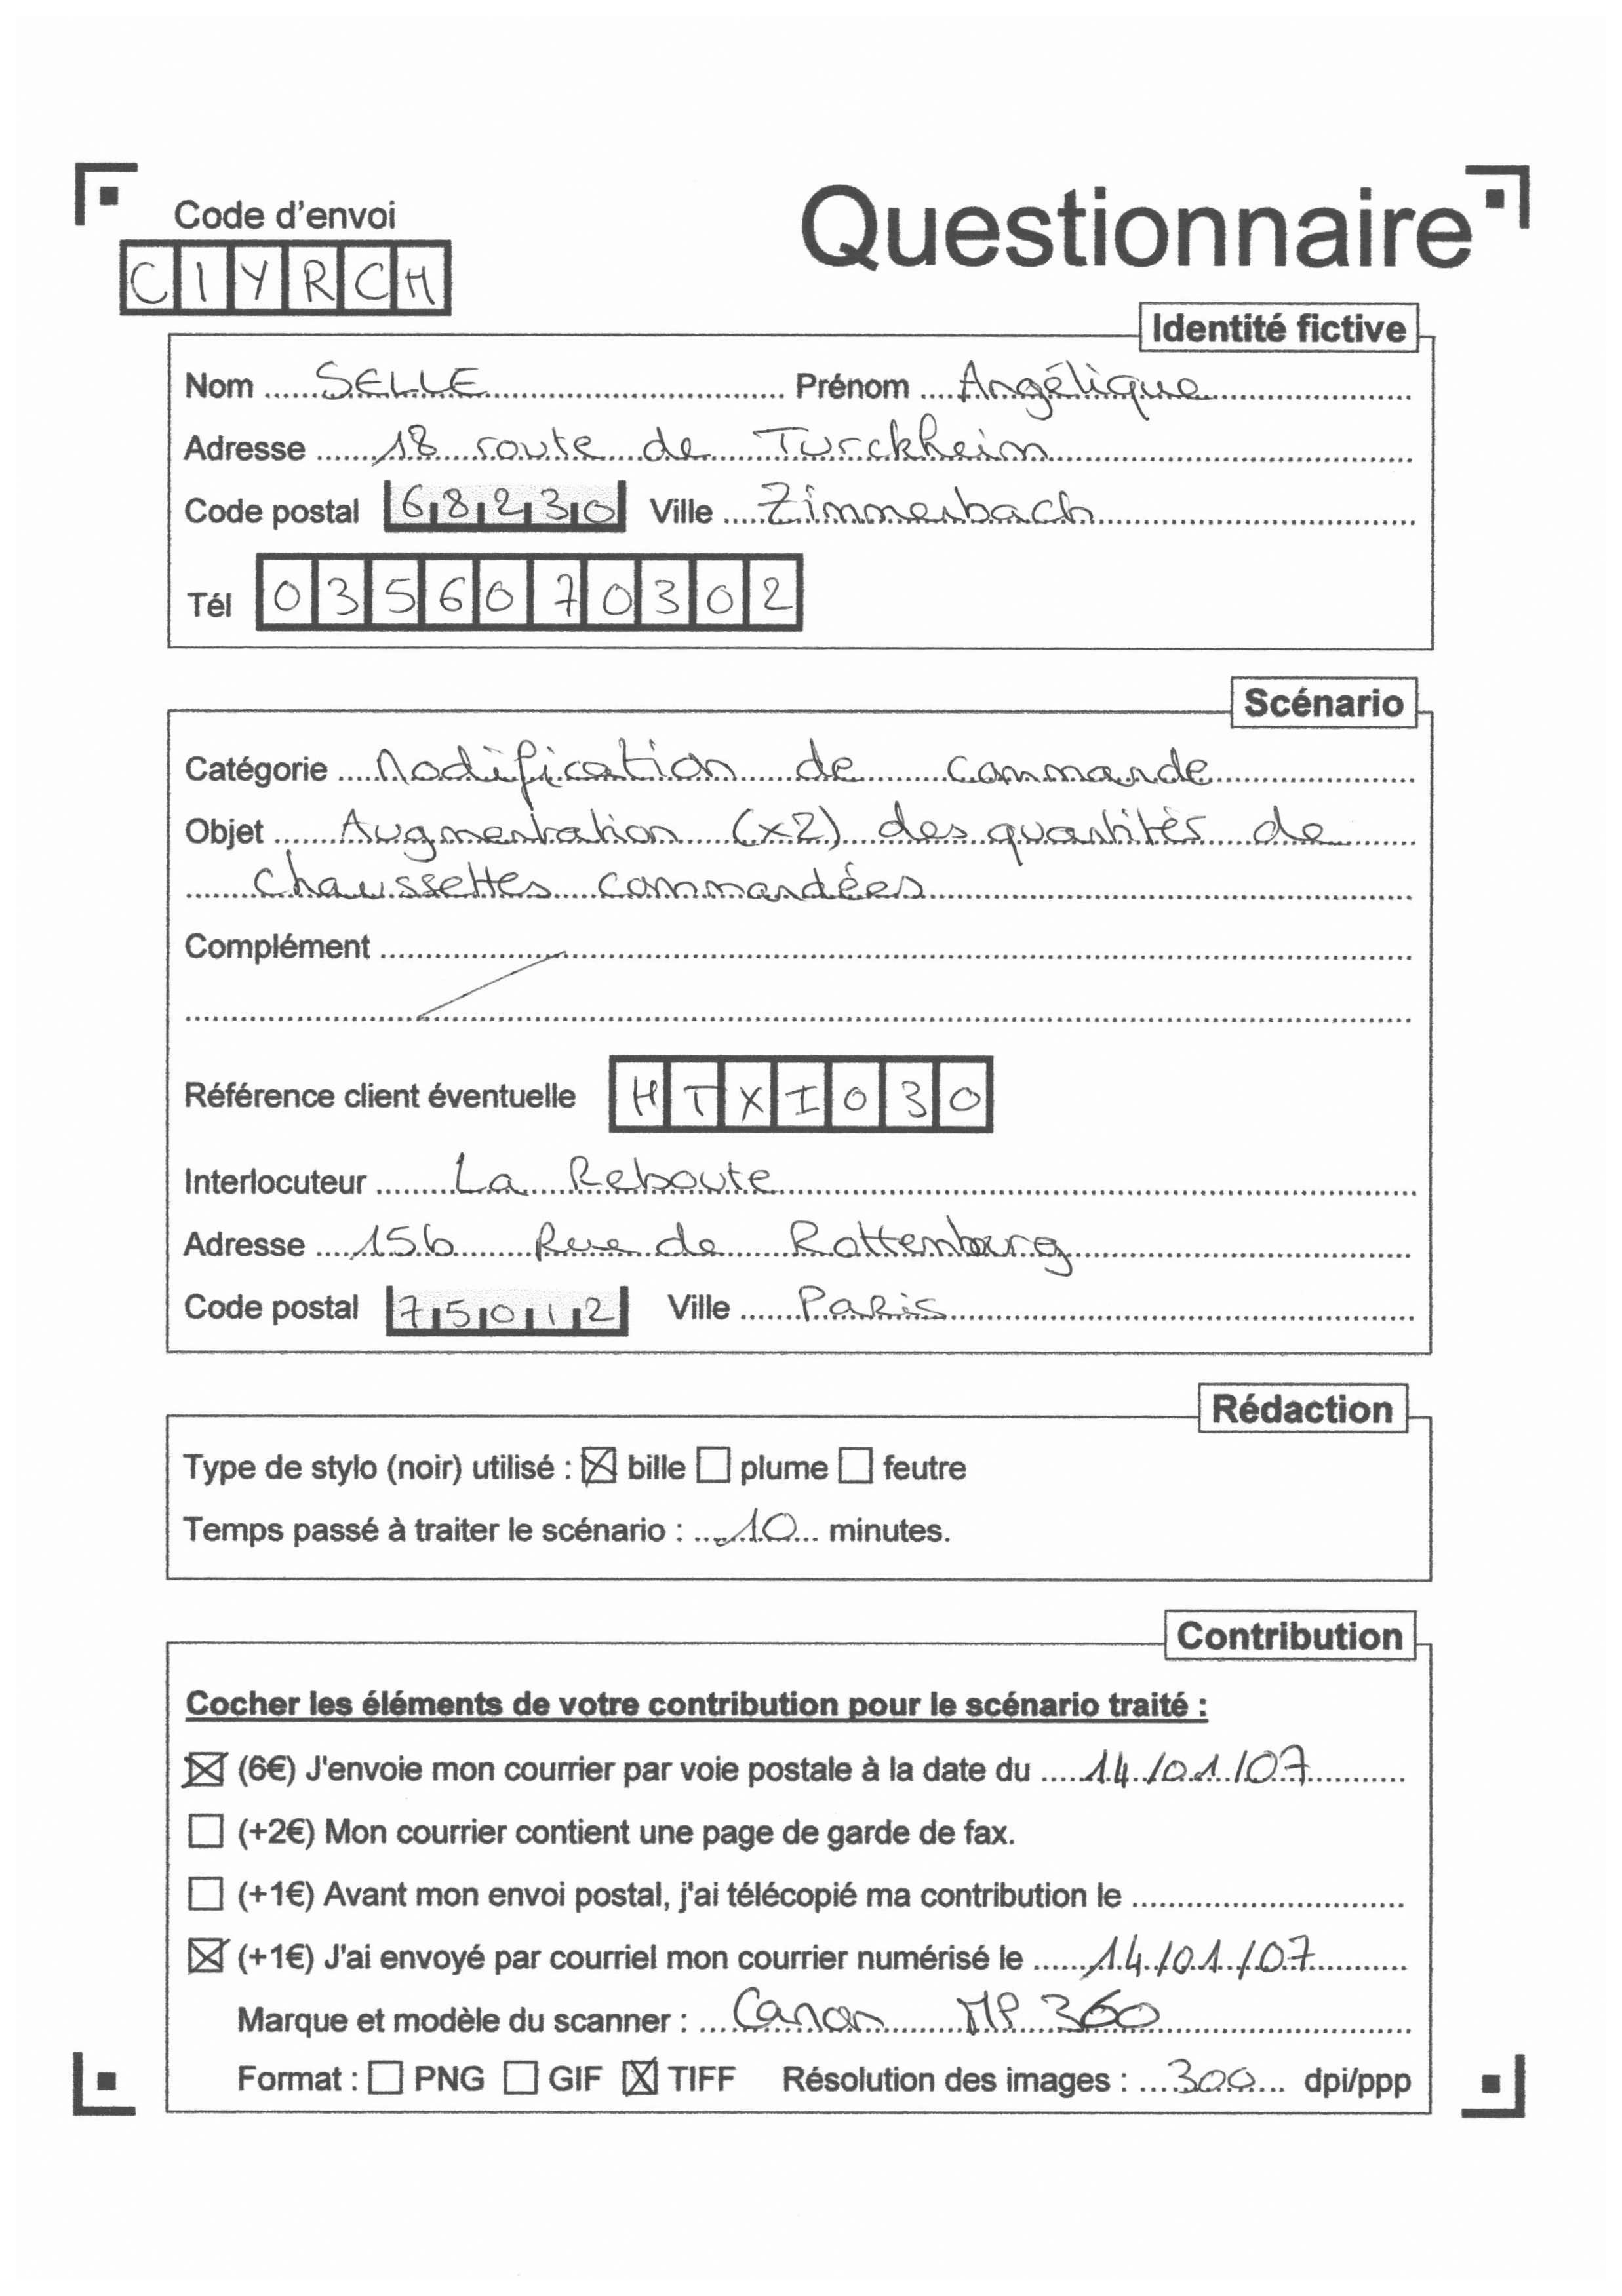 Code d'envoi
Questionnaire
CIYRCH
Identité fictive
Nom SELLE Prénom Angélique
Adresse 18 route de Turckheim
Code postal 68230 Ville Zimmerbach
Tél 0356070302
Scénario
Catégorie Modification de commande
Objet Augmentation (x2) des quantités de
chaussettes commandées
Complément
Référence client éventuelle HTXI030
Interlocuteur La Reboute
Adresse 15b Rue de Rottembourg
Code postal 75012 Ville Paris
Rédaction
Type de stylo (noir) utilisé : ☒ bille ☐ plume ☐ feutre
Temps passé à traiter le scénario : 10 minutes.
Contribution
Cocher les éléments de votre contribution pour le scénario traité :
☒ (6€) J'envoie mon courrier par voie postale à la date du 14/01/07
☐ (+2€) Mon courrier contient une page de garde de fax.
☐ (+1€) Avant mon envoi postal, j'ai télécopié ma contribution le
☒ (+1€) J'ai envoyé par courriel mon courrier numérisé le 14/01/07
Marque et modèle du scanner : Canon MP 360
Format : ☐ PNG ☐ GIF ☒ TIFF Résolution des images : 300 dpi/ppp